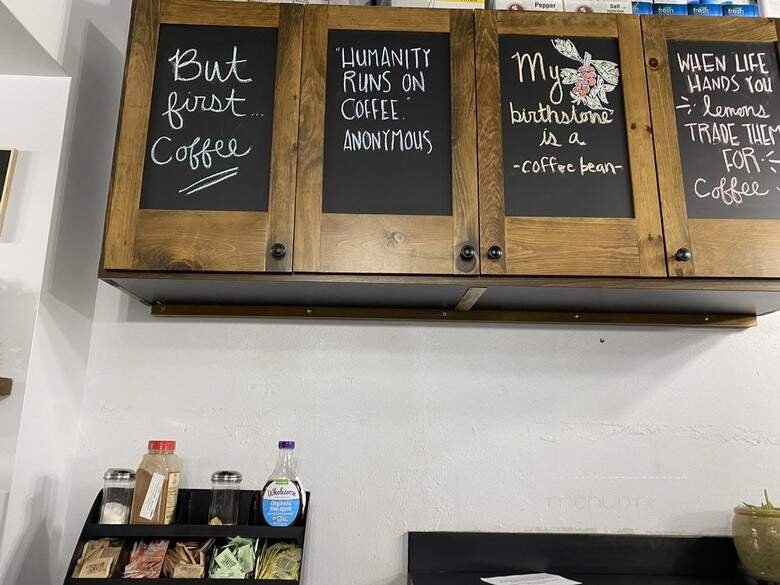 Pepper
Salt
fresh
fresh
fresh
But
first...
Coffee
"HUMANITY
RUNS ON
COFFEE."
ANONYMOUS
My
birthstone
is a
-coffee bean-
WHEN LIFE
HANDS YOU
lemons
TRADE THEM
FOR:
Coffee
Wholesome
Organic
menupix